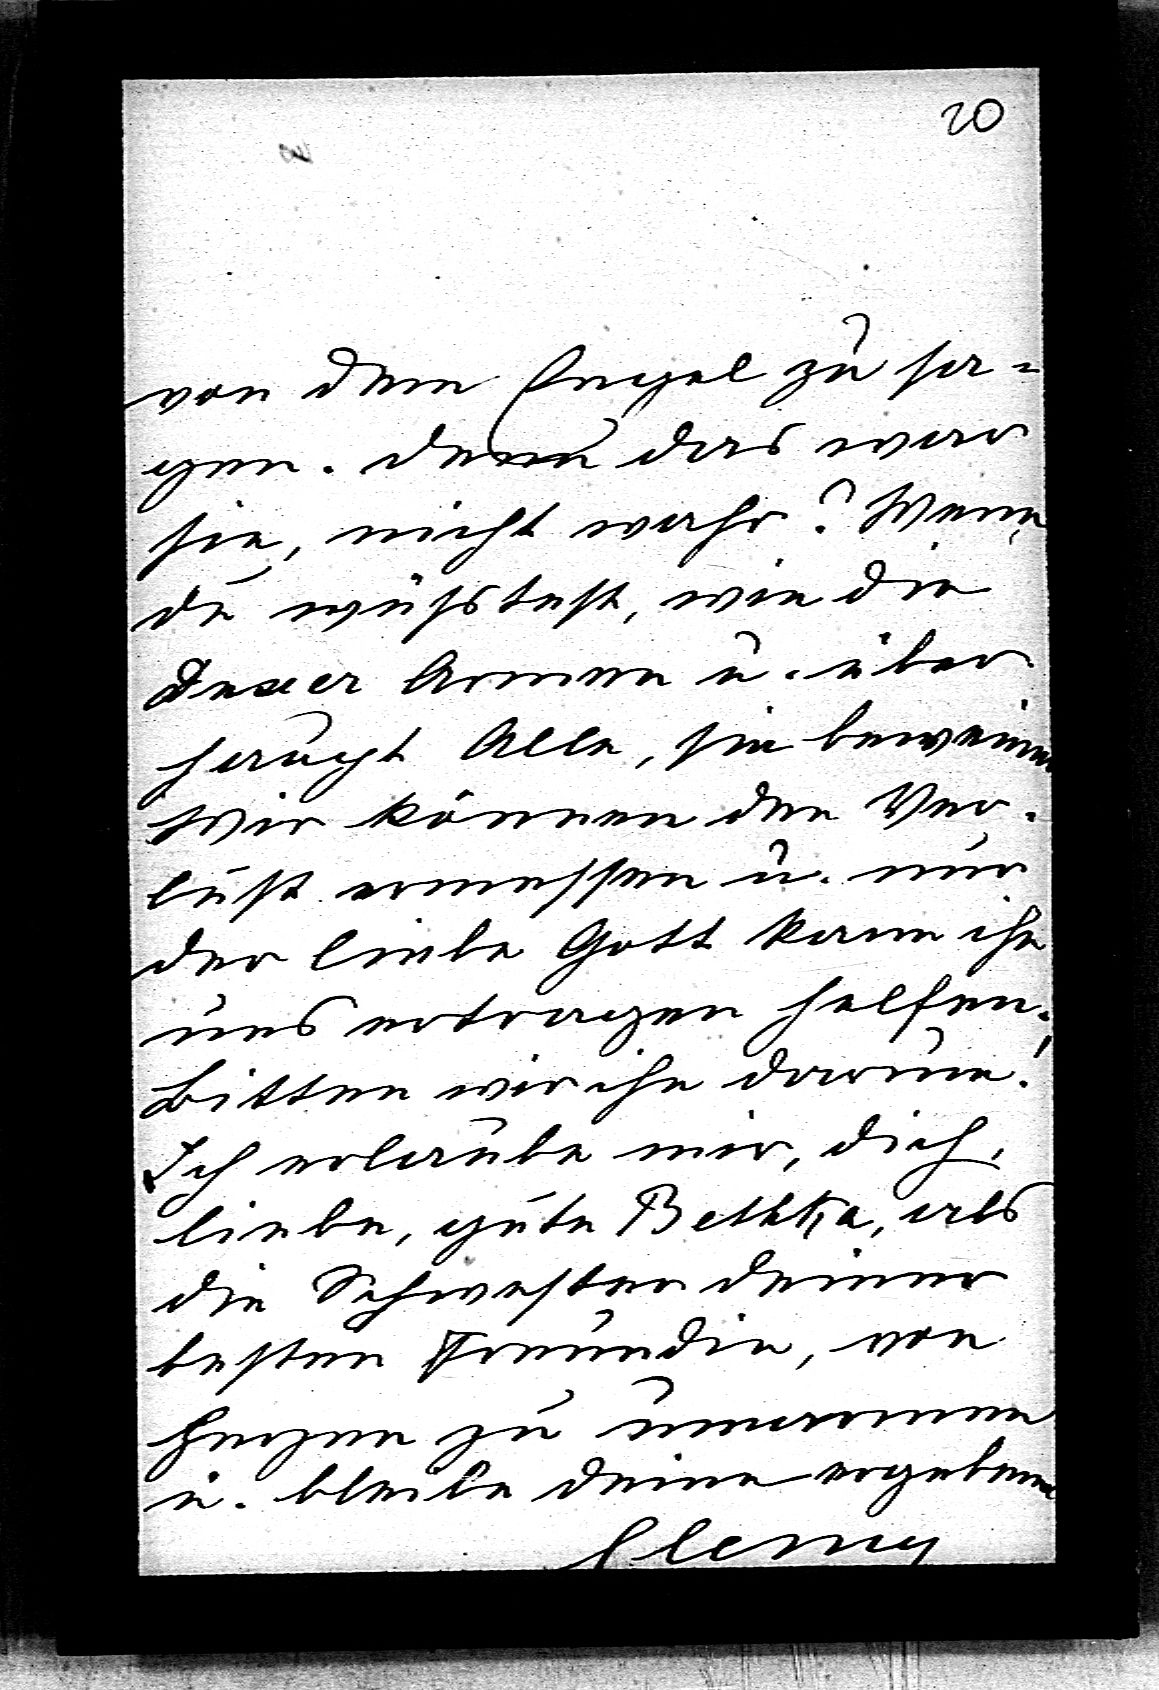 20
von dem Engel zu sa=
gen. denn das war
sie, nicht wahr? Wenn
du wüßtest, wie die
Armen u. über
haupt Alle, sie beweinen
Wir können den Ver-
lust ermessen u. nur
der liebe Gott kann ihn
uns ertragen helfen.
Bitten wir ihn darum!
Ich erlaube mir, dich,
liebe, gute Bethka, als
die Schwester deiner
besten Freundin, von
Herzen zu umarmen
u. bleibe deine ergebene
Clemy